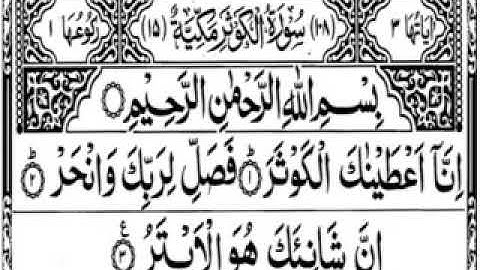 اٰيَاتُهَا ٣ (١٠٨) سُوْرَةُ الْكَوْثَرِ مَكِّيَّةٌ (١٥) رُكُوْعُهَا ١
بِسْمِ اللّٰهِ الرَّحْمٰنِ الرَّحِيْمِ
اِنَّاۤ اَعْطَيْنٰكَ الْكَوْثَرَؕ ١ فَصَلِّ لِرَبِّكَ وَانْحَرْؕ ٢
اِنَّ شَانِئَكَ هُوَ الْاَبْتَرُ ٣ ع